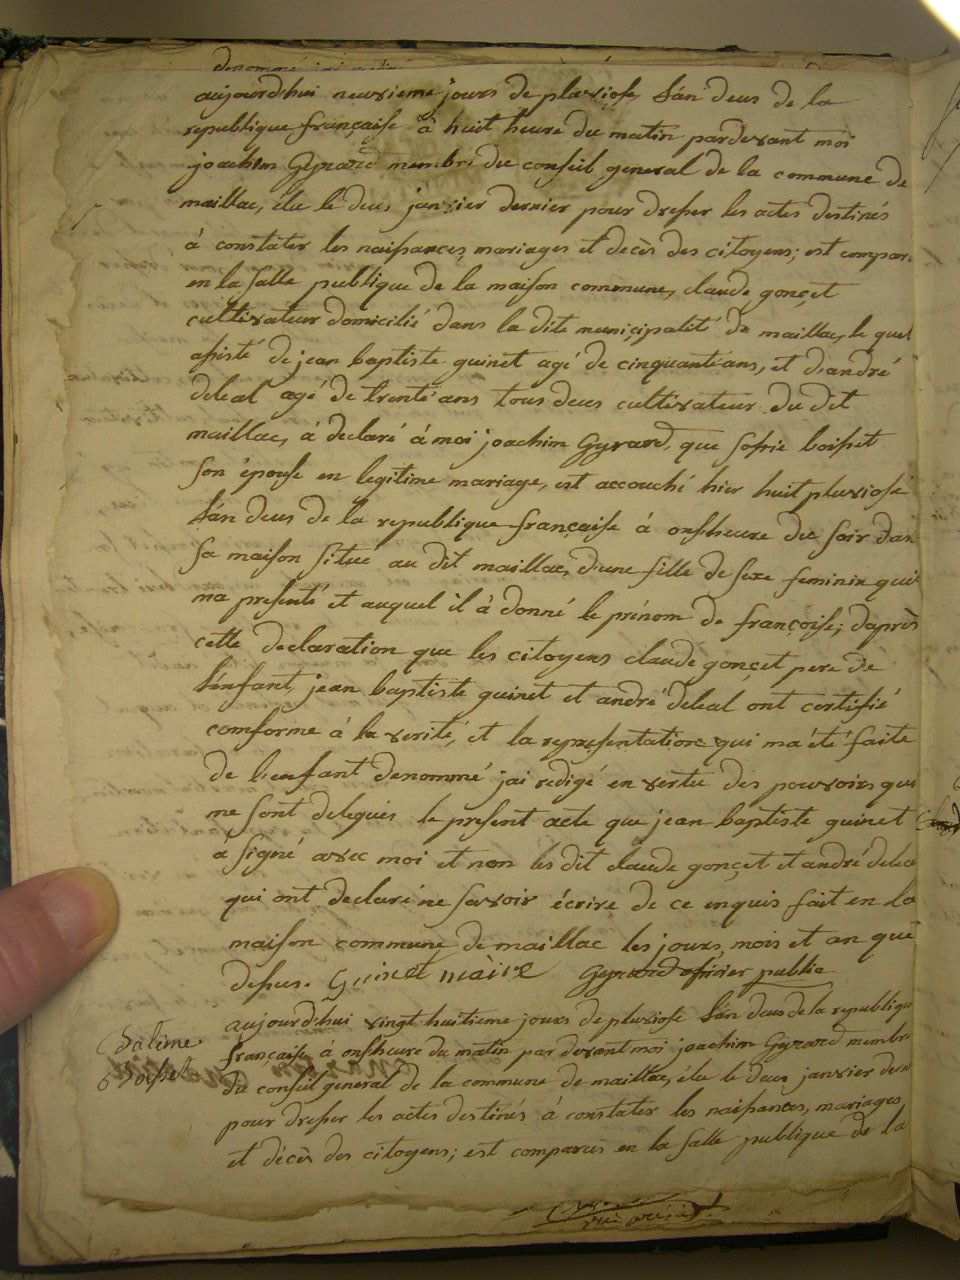 aujourdhui neuvieme jours de pluviose L'án deus de la
republique française à huit heure du matin pardevant moi
joachim Gynard membre du conseil general de la commune de
maillac, élu le deus janvier dernier pour dresser les actes destinés
à constater les naissances, mariages et decès des citoyens; est compar.
en la salle publique de la maison commune, claude gonçet
cultivateur domicilié dans la dite municipalité de maillac, le quel
assisté de jean baptiste guinet agé de cinquante ans, et d'andré
deleal agé de trente ans tous deus cultivateur du dit
maillac, à declaré à moi joachim Gynard, que sofie boisset
son épouse en legitime mariage, est accouché hier huit pluviose
L'án deus de la republique française à onsheure du soir dan
sa maison situé au dit maillac, d'une fille de sexe feminin qui
ma presenté et auquel il à donné le prénom de françoise; daprès
cette declaration que les citoyens claude gonçet pere de
L'enfant, jean baptiste guinet et andré deleal ont certifié
comforme à la verité, et la representation qui ma été faite
de L'enfant denommé jai redigé en vertu des pouvoirs qui
me sont delegués le present acte que jean baptiste guinet
à signé avec moi et non les dit claude gonçet et andré delea
qui ont declaré ne savoir écrire de ce enquis fait en la
maison commune de maillac les jours, mois et an que
dessus. Guinet màire Gynard officier public
Dalime
Boisset
aujourd'hui vingt huitieme jours de pluviose L'án deus de la republique
française à onsheure du matin par devant moi joachim Gynard membr
du conseil general de la commune de maillac, élu le deus janvier dern
pour dresser les actes destinés à constater les naissances, mariages
et décès des citoyens; est comparus en la salle publique de la